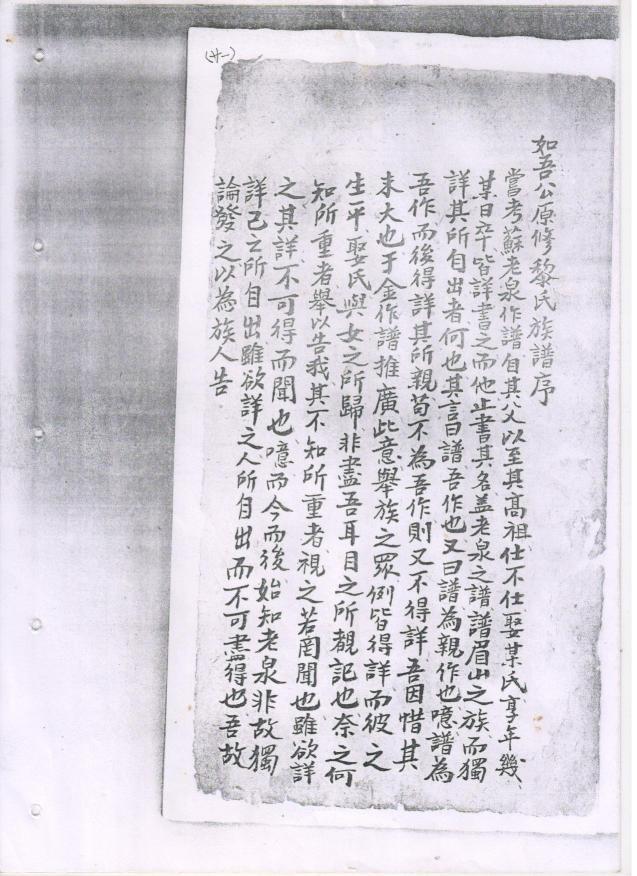 (廿一)
如吾公原修黎氏族譜序
嘗考蘇老泉作譜自其父以至其高祖仕不仕娶某氏享年幾、
某日卒皆詳書之而他止書其名盖老泉之譜譜眉山之族而獨
詳其所自出者何也其言曰譜吾作也又曰譜為親作也噫譜為
吾作而後得詳其所親苟不為吾作則又不得詳吾因惜其
未大也于金作譜推廣此意舉族之眾例皆得詳而彼之
生平娶氏與女之所歸非盡吾耳目之所覩記也奈之何
知所重者舉以告我其不知所重者視之若罔聞也雖欲詳
之其詳不可得而聞也噫而今而後始知老泉非故獨
詳己之所自出雖欲詳之人所自出而不可盡得也吾故
論發之以為族人告